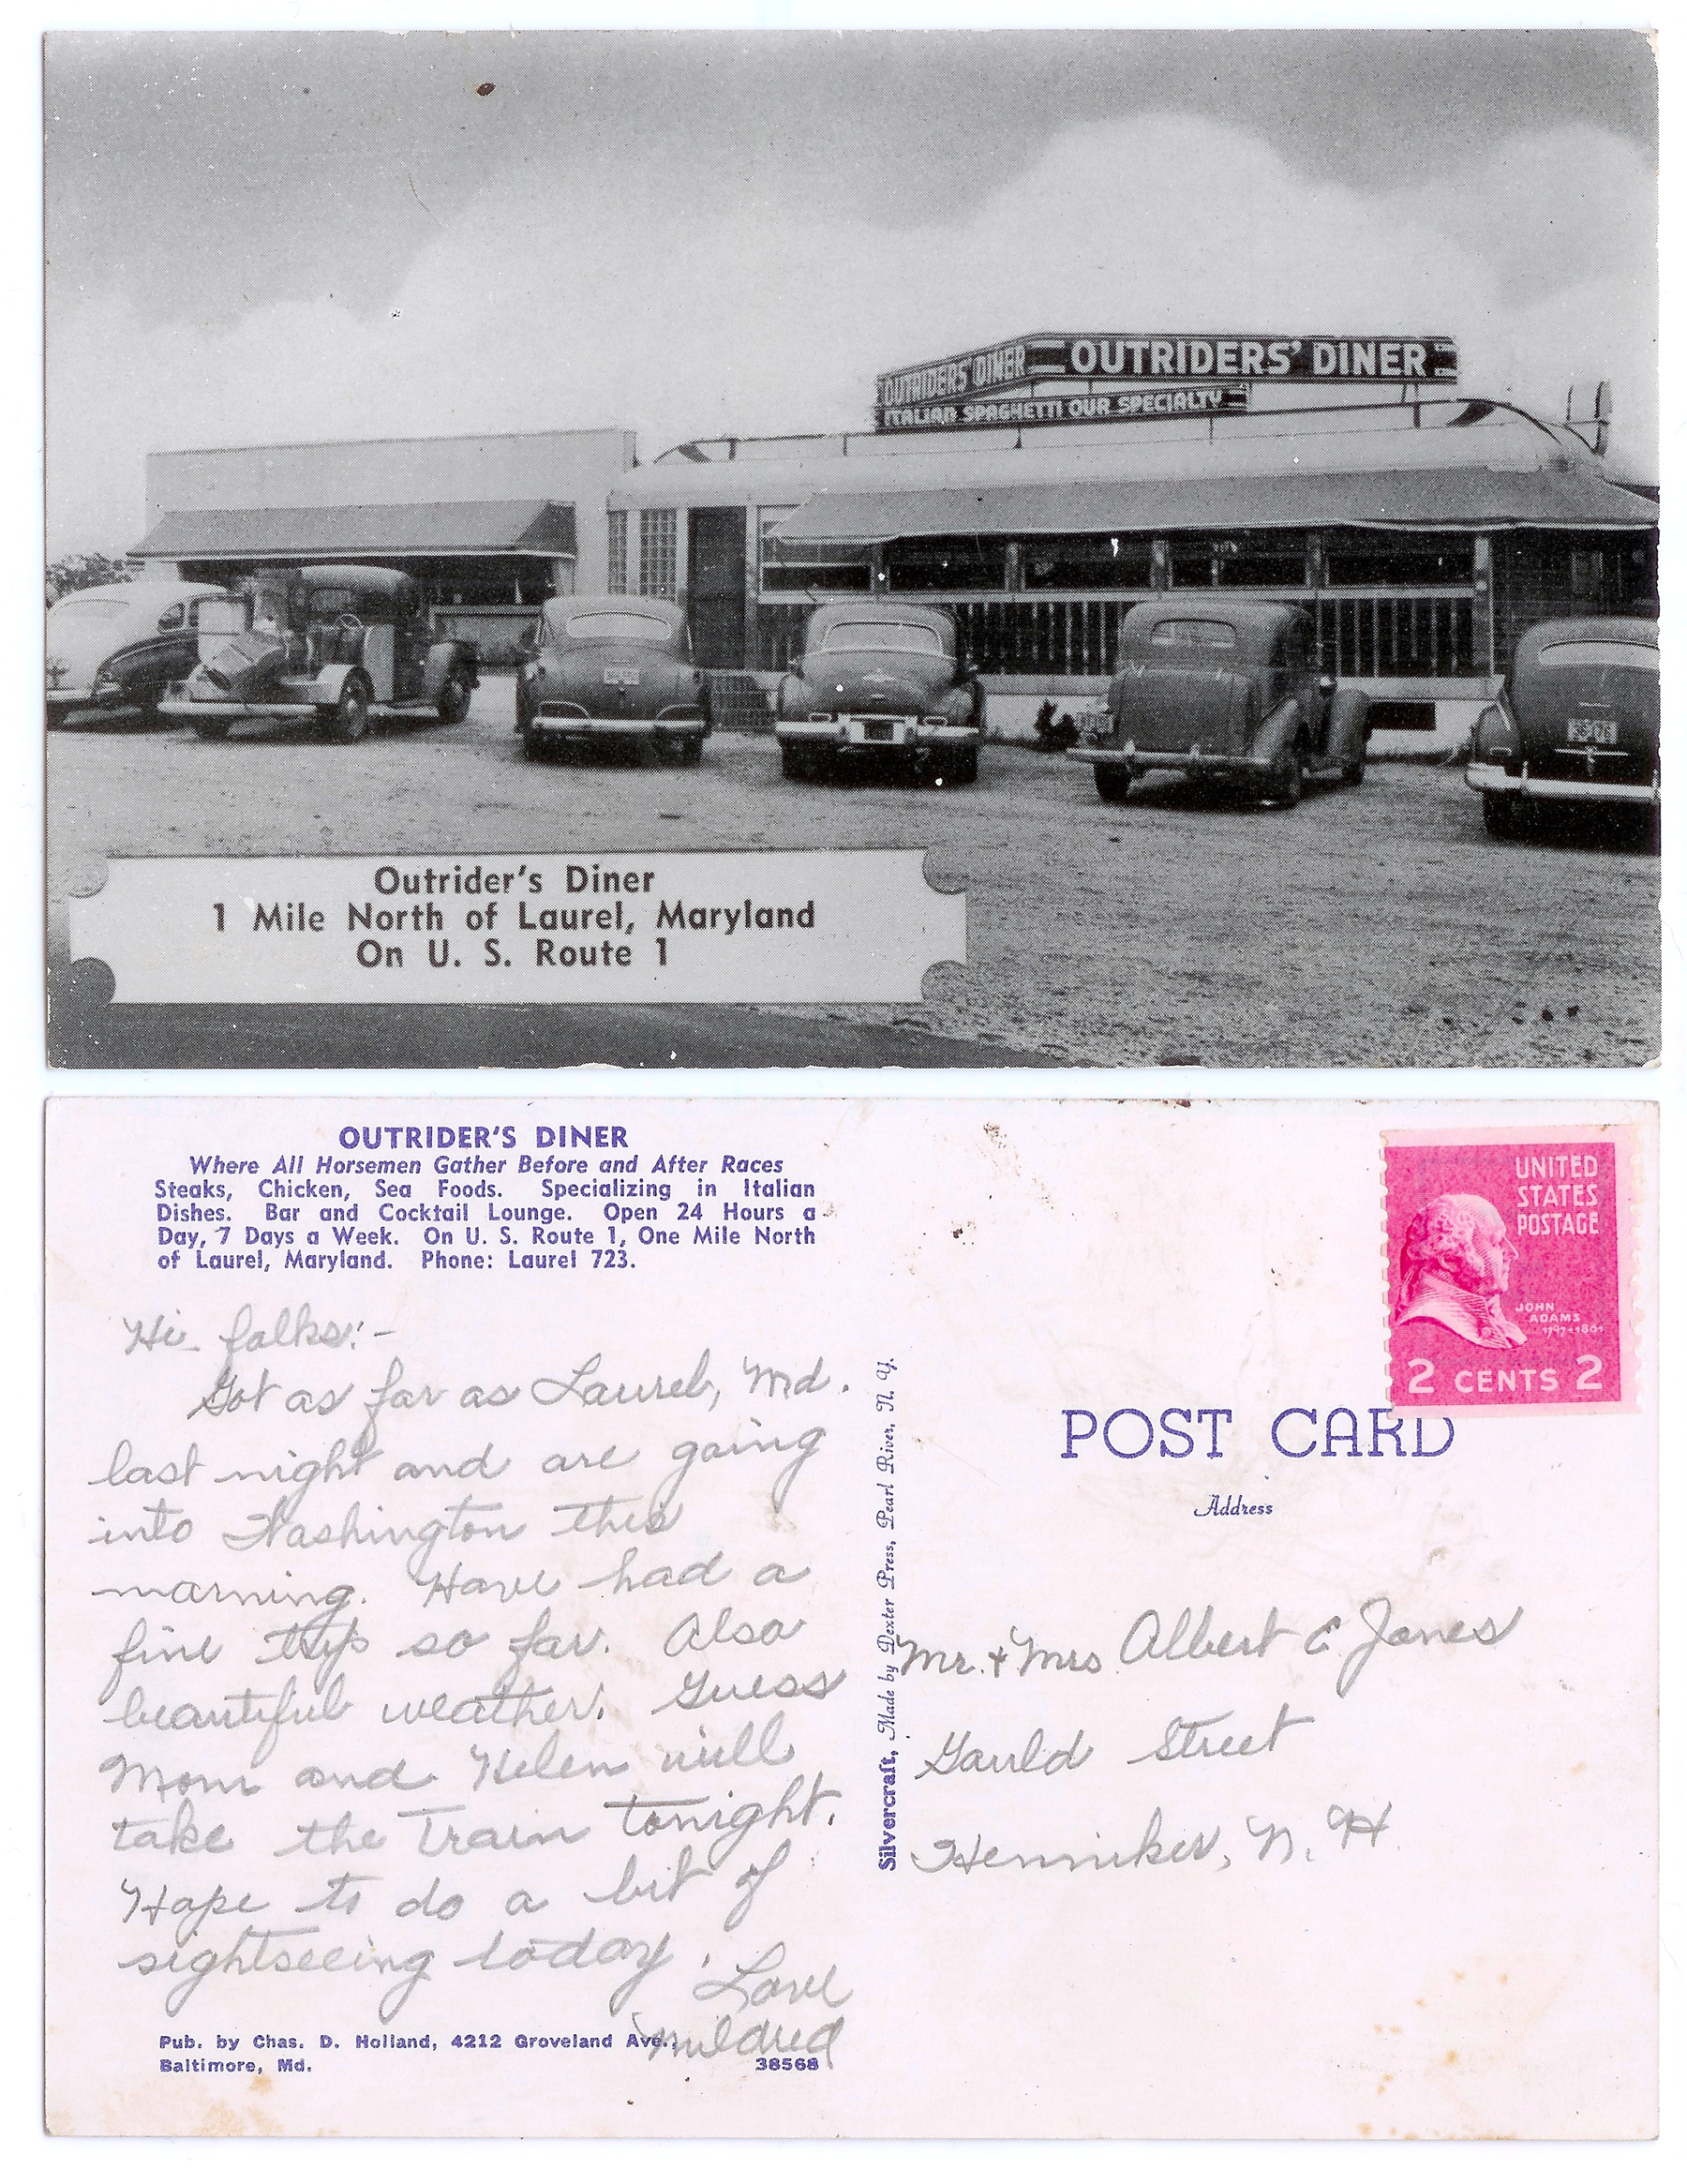 OUTRIDERS' DINER
OUTRIDERS' DINER
ITALIAN SPAGHETTI OUR SPECIALTY
Outrider's Diner
1 Mile North of Laurel, Maryland
On U. S. Route 1
OUTRIDER'S DINER
Where All Horsemen Gather Before and After Races
Steaks, Chicken, Sea Foods. Specializing in Italian
Dishes. Bar and Cocktail Lounge. Open 24 Hours a
Day, 7 Days a Week. On U. S. Route 1, One Mile North
of Laurel, Maryland. Phone: Laurel 723.
Hi folks:-
Got as far as Laurel, Md.
last night and are going
into Washington this
morning. Have had a
fine trip so far. Also
beautiful weather. Guess
Mom and Helen will
take the train tonight.
Hope to do a bit of
sightseeing today.
Love
Mildred
Pub. by Chas. D. Holland, 4212 Groveland Ave.,
Baltimore, Md. 38568
Silvercraft, Made by Dexter Press, Pearl River, N. Y.
UNITED
STATES
POSTAGE
JOHN
ADAMS
1797-1801
2 CENTS 2
POST CARD
Address
Mr. + Mrs. Albert C Jones
Gould Street
Henniker, N. H.